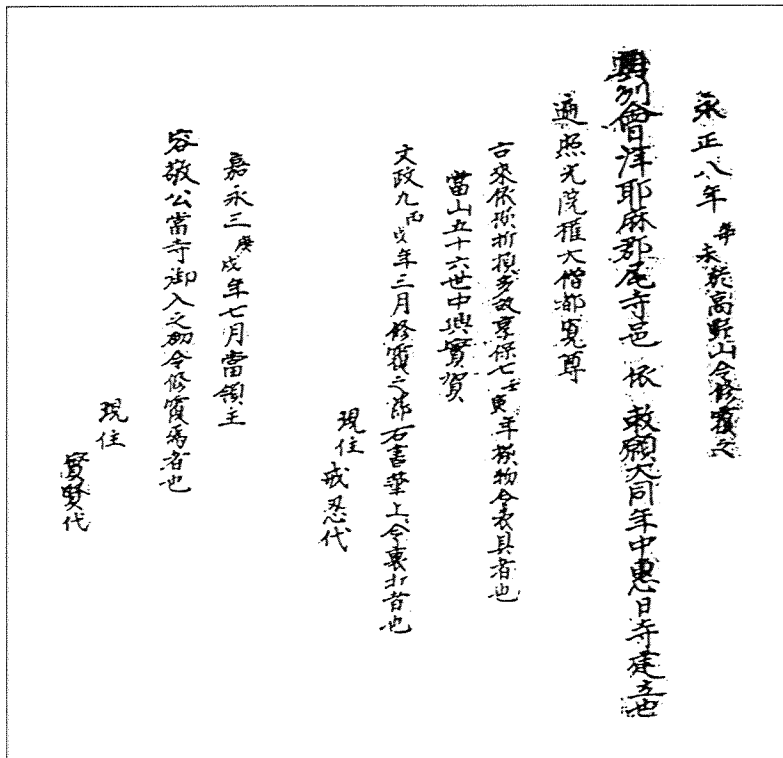 永正八年辛未於高野山令修覆之
奥州會津耶麻郡尾寺邑 依 敕願大同年中惠日寺建立也
遍照光院權大僧都寛尊
古來依損折損多故享保七壬寅年損物令表具者也
當山五十六世中興實賀
文政九丙戌年三月修覆之節石書葉上令裏打者也
現住 戒忍代
嘉永三庚戌年七月當領主
容敬公當寺御入之砌令修覆焉者也
現住
實賢代